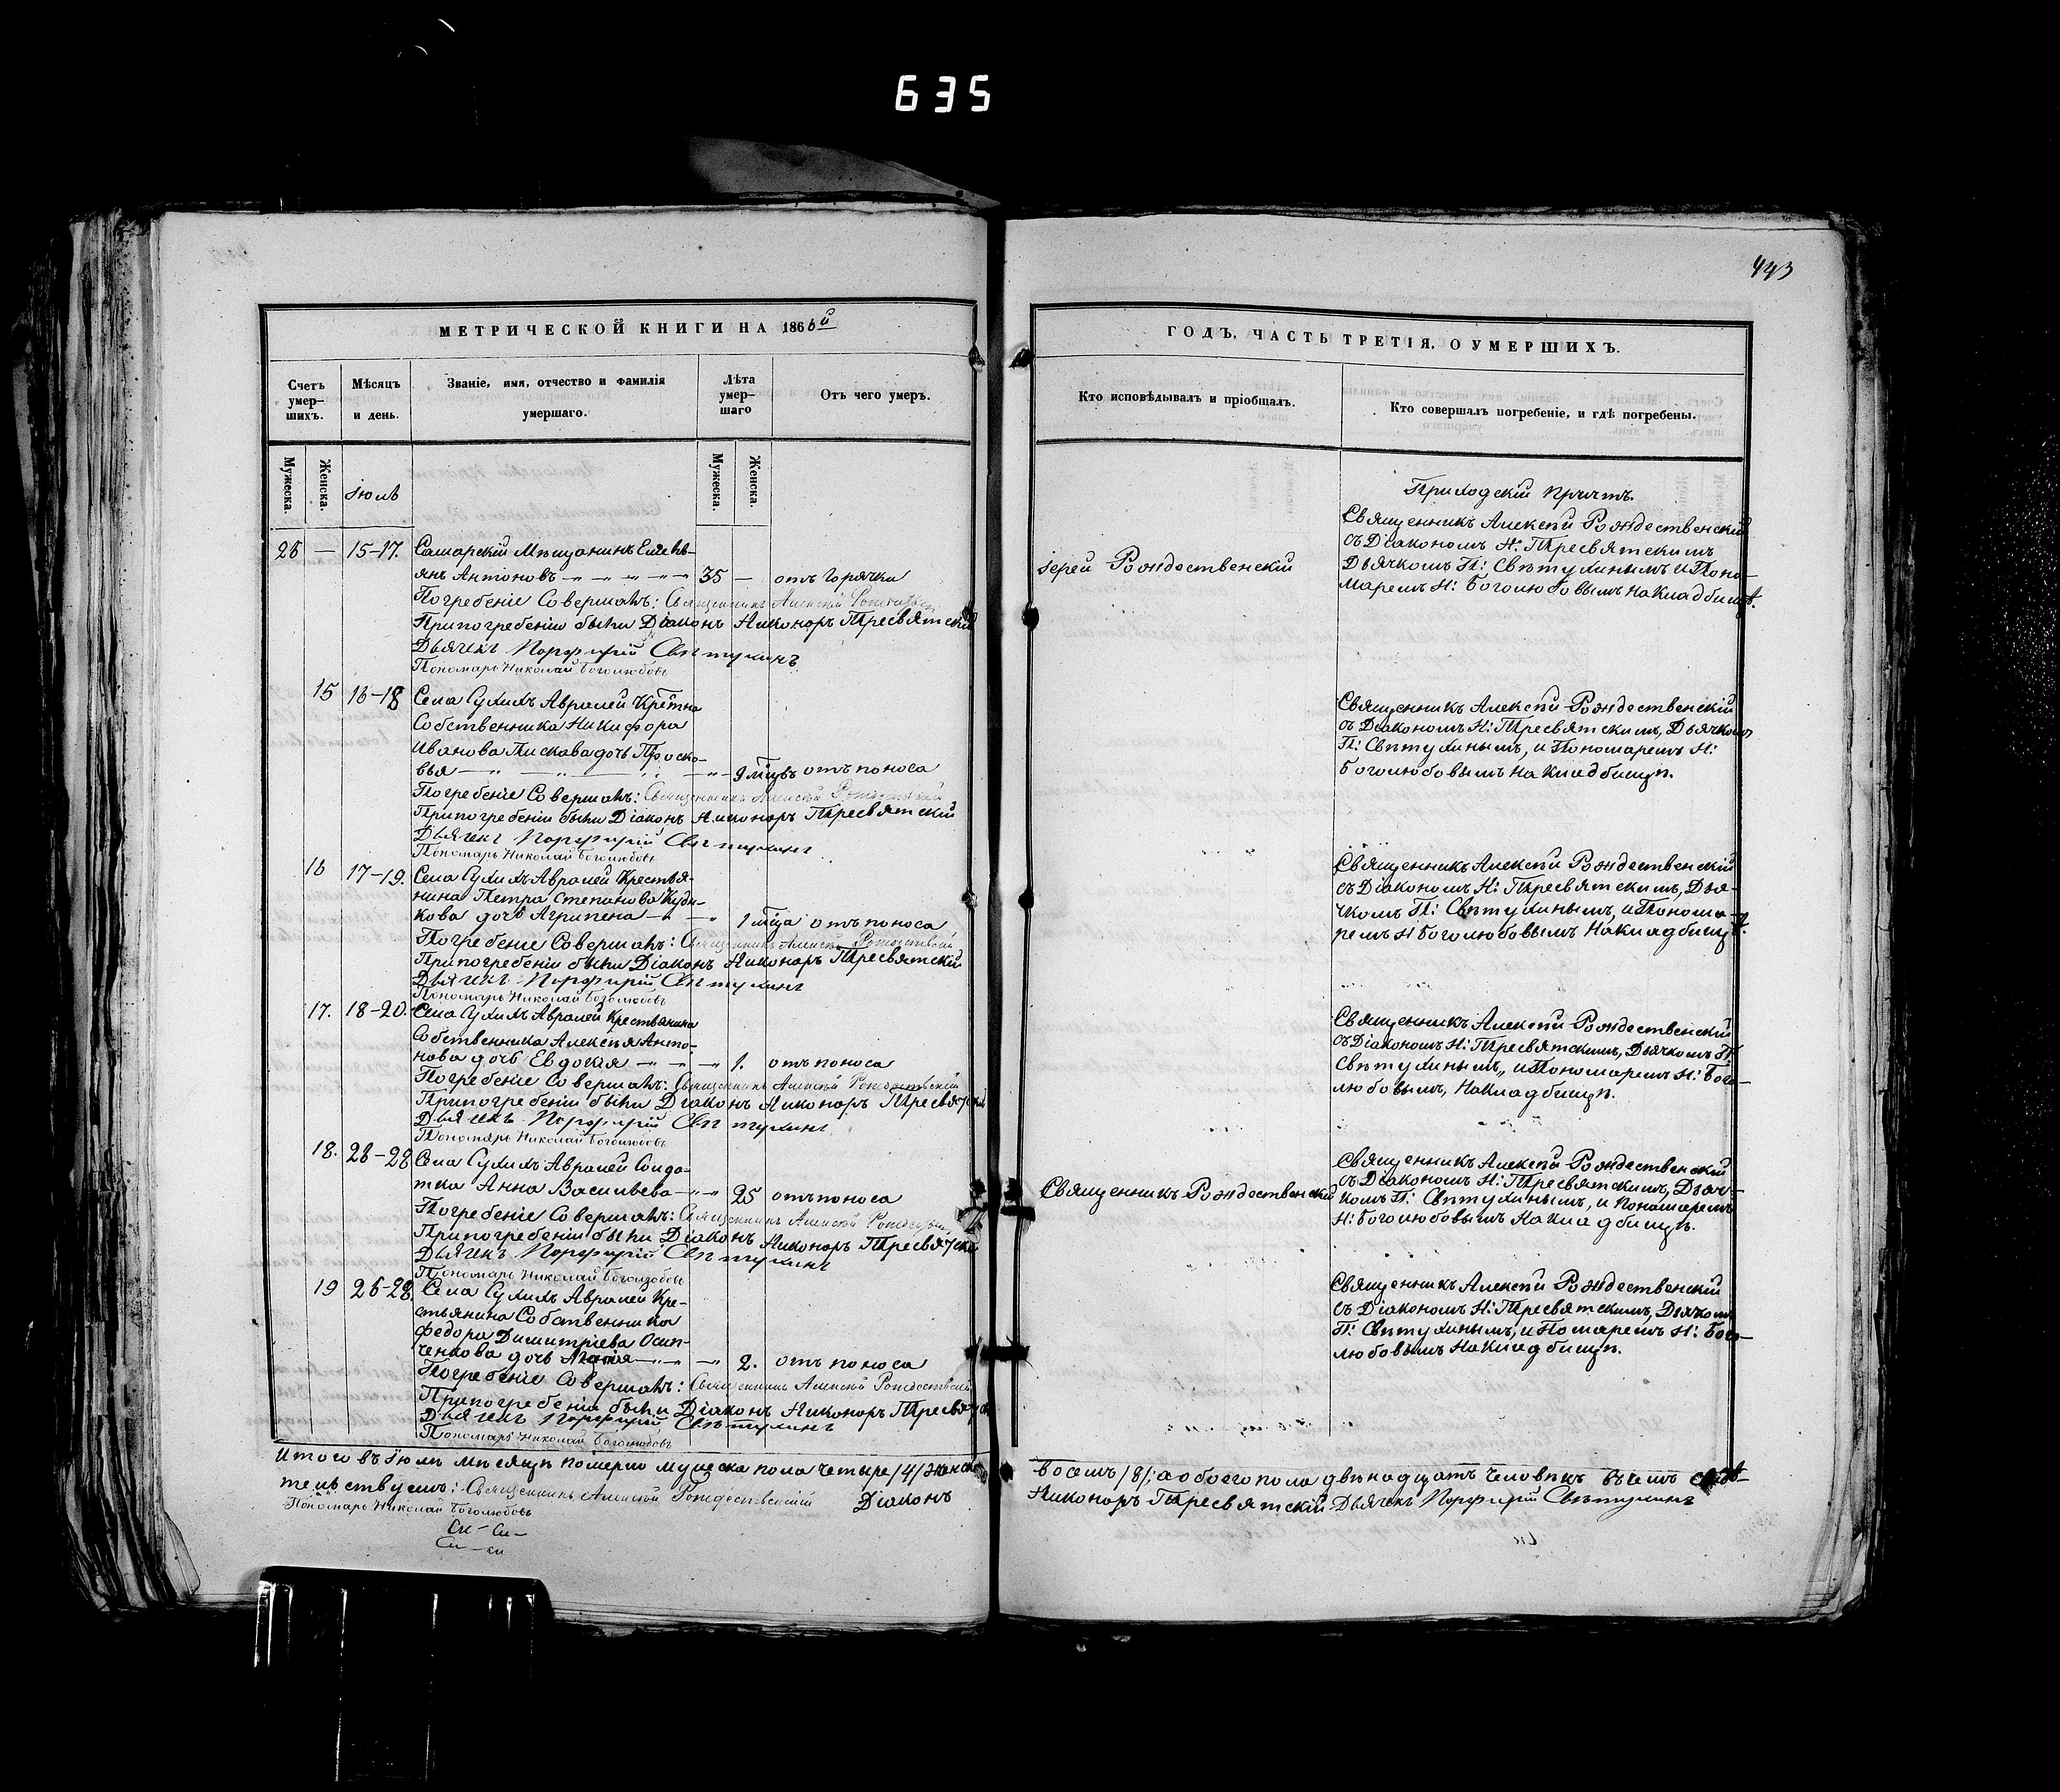 635
443
МЕТРИЧЕСКОЙ КНИГИ НА 1866й
ГОДЪ, ЧАСТЬ ТРЕТІЯ, О УМЕРШИХЪ.
Счетъ умер-шихъ.
Мѣсяцъ и день.
Званіе, имя, отчество и фамилія умершаго.
Лѣта умер-шаго
Отъ чего умеръ.
Кто исповѣдывалъ и пріобщалъ.
Кто совершалъ погребеніе, и гдѣ погребены.
Мужеска.
Женска.
Іюль
Мужеска.
Женска.
26 — 15-17. Самарскій Мѣщанинъ
янъ Антоновъ 35 — отъ горячки
Погребеніе Совершалъ: Священникъ Алексѣй Рождественскій
При погребеніи были Діаконъ Никоноръ Пресвятскій
Дьячекъ Порфирій Свѣтухинъ
Пономарь Николай Боголюбовъ
Іерей Рождественскій
Приходскій Причтъ.
Священникъ Алексѣй Рождественскій
съ Діакономъ Н: Пресвятскимъ
Дьячкомъ П: Свѣтухинымъ и Поно-
маремъ Н: Боголюбовымъ на Кладбищѣ.
15 16-18 Села Сухихъ Авралей Крестна
Собственника Никифора
Иванова Пискава дочь Проско-
вья 9 мцвъ отъ поноса
Погребеніе Совершалъ: Священникъ Алексѣй Рождественскій
При погребеніи были Діаконъ Никоноръ Пресвятскій
Дьячекъ Порфирій Свѣтухинъ
Пономарь Николай Боголюбовъ
Священникъ Алексѣй Рождественскій
съ Діакономъ Н: Пресвятскимъ, Дьячкомъ
П: Свѣтухинымъ, и Пономаремъ Н:
Боголюбовымъ на Кладбищѣ.
16 17-19. Села Сухихъ Авралей Крестья-
нина Петра Степанова
кова дочь Агрипена 1 мца отъ поноса
Погребеніе Совершалъ: Священникъ Алексѣй Рождественскій
При погребеніи были Діаконъ Никоноръ Пресвятскій
Дьячекъ Порфирій Свѣтухинъ
Пономарь Николай Боголюбовъ
Священникъ Алексѣй Рождественскій
съ Діакономъ Н: Пресвятскимъ, Дья-
чкомъ П: Свѣтухинымъ, и Понома-
ремъ Н Боголюбовымъ На Кладбищѣ.
17. 18-20. Села Сухихъ Авралей Крестьянина
Собственника Алексѣя Анто-
нова дочь Евдокія 1. отъ поноса
Погребеніе Совершалъ: Священникъ Алексѣй Рождественскій
При погребеніи были Діаконъ Никоноръ Пресвятскій
Дьячекъ Порфирій Свѣтухинъ
Пономарь Николай Боголюбовъ
Священникъ Алексѣй Рождественскій
съ Діакономъ Н: Пресвятскимъ, Дьячкомъ П:
Свѣтухинымъ, и Пономаремъ Н: Бого-
любовымъ, На Кладбищѣ.
18. 26-28 Села Сухихъ Авралей Солда-
тка Анна Васильева 25 отъ поноса
Погребеніе Совершалъ: Священникъ Алексѣй Рождественскій
При погребеніи были Діаконъ Никоноръ Пресвятскій
Дьячекъ Порфирій Свѣтухинъ
Пономарь Николай Боголюбовъ
Священникъ Рождественскій
Священникъ Алексѣй Рождественскій
съ Діакономъ Н: Пресвятскимъ, Дьяч-
комъ П: Свѣтухинымъ, и Пономаремъ
Н: Боголюбовымъ На Кладбищѣ.
19 26-28 Села Сухихъ Авралей Кре-
стьянина Собственника
Федора Димитріева Осип-
ченкова дочь 2. отъ поноса
Погребеніе Совершалъ: Священникъ Алексѣй Рождественскій
При погребеніи были Діаконъ Никоноръ Пресвятскій
Дьячекъ Порфирій Свѣтухинъ
Пономарь Николай Боголюбовъ
Священникъ Алексѣй Рождественскій
съ Діакономъ Н: Пресвятскимъ, Дьячкомъ
П: Свѣтухинымъ, и Помаремъ Н: Бого-
любовымъ На Кладбищѣ.
Итого въ Іюлѣ мѣсяцѣ померло мужеска пола четыре /4/ женска восемь /8/; а обоего пола двѣнадцать человѣкъ въ чемъ свидѣ-
тельствуемъ: Священникъ Алексѣй Рождественскій Діаконъ Никоноръ Пресвятскій Дьячекъ Порфирій Свѣтухинъ
Пономарь Николай Боголюбовъ